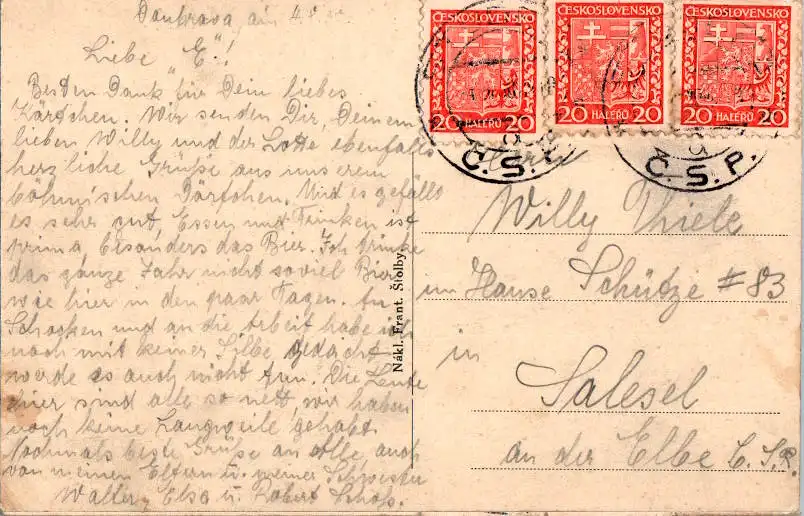 Doubrava am 4.8.
Liebe "E"!
Besten Dank für Dein liebes
Kärtchen. Wir senden Dir, Deinem
lieben Willy und der Lotte ebenfalls
herzliche Grüße aus unserem
böhmischen Dörfchen. Und es gefällt
es sehr gut, Essen und Trinken ist
prima besonders das Bier. Ich trinke
das ganze Jahr nicht soviel Bier
wie hier in den paar Tagen. An
und an die Arbeit habe ich
noch mit keiner Silbe gedacht
werde es auch nicht tun. Die Leute
hier sind alle so nett, wir haben
noch keine Langweile gehabt.
Nochmals beste Grüße an alle auch
von meinen Eltern u. meiner Schwester
Walter, Elsa u.
Nákl. Frant. Štolby
ČESKOSLOVENSKO
20 HALÉŘŮ 20
ČESKOSLOVENSKO
20 HALÉŘŮ 20
ČESKOSLOVENSKO
20 HALÉŘŮ 20
Č.S.P.
Č.S.P.
Herrn
Willy Thiele
im Hause Schütze #83
in
Salesel
an der Elbe Č.S.R.